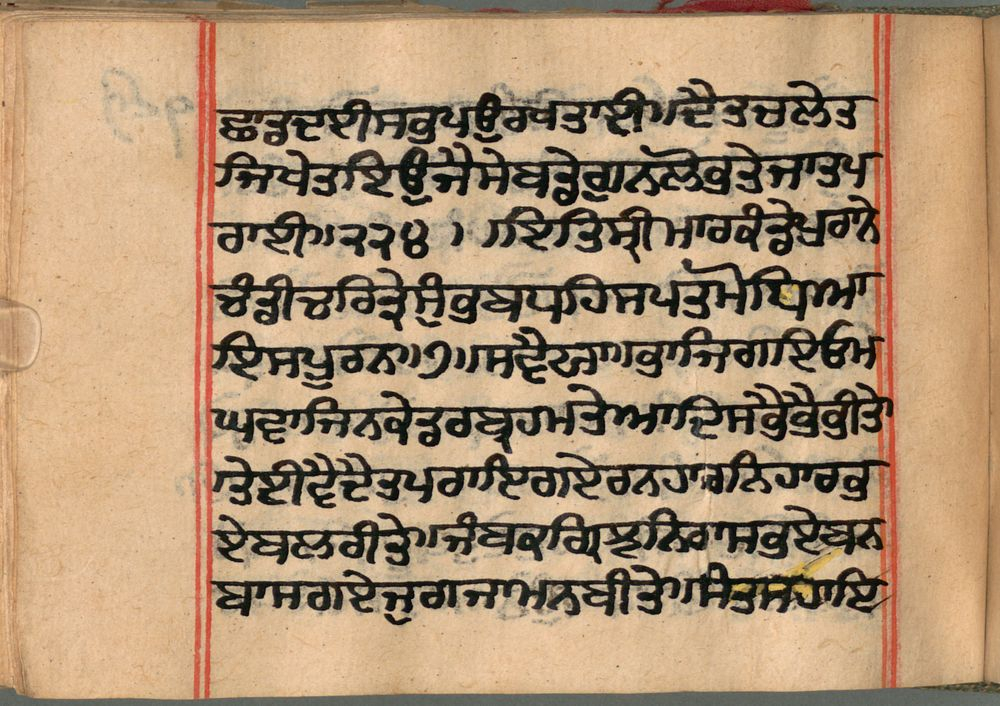 ਛਾਡਦਈਸਭਪਉਰਖਤਾਈ॥ਦੈਤਚਲੇਤ
ਜਿਖੇਤਇਉਜੈਸੇਬਡੇਗੁਨਲੋਭਤੇਜਾਤਪ
ਰਾਈ॥੨੨੪॥ ॥ਇਤਿਸ੍ਰੀਮਾਰਕੰਡੇਪੁਰਾਨੇ
ਚੰਡੀਚਰਿਤ੍ਰੇਸੁੰਭਬਧਹਿਸਪਤਮੋਧਿਆ
ਇਸਪੁਰਨ॥੭॥ਸਵੈਯਾ॥ਭਾਜਿਗਇਓਮ
ਘਵਾਜਿਨਕੇਡਰਬ੍ਰਹਮਤੇਆਦਿਸਭੈਭੈਭੀਤੇ
॥ਤੇਈਵੈਦੈਤਪਰਾਇਗਏਰਨਹਾਰਨਿਹਾਰਭ
ਏਬਲਰੀਤੇ॥ਜੰਬਕਗ੍ਰਿਝਨਿਰਾਸਭਏਬਨ
ਬਾਸਗਏਜੁਗਜਾਮਨਬੀਤੇ॥ਸੰਤਸਹਾਇ